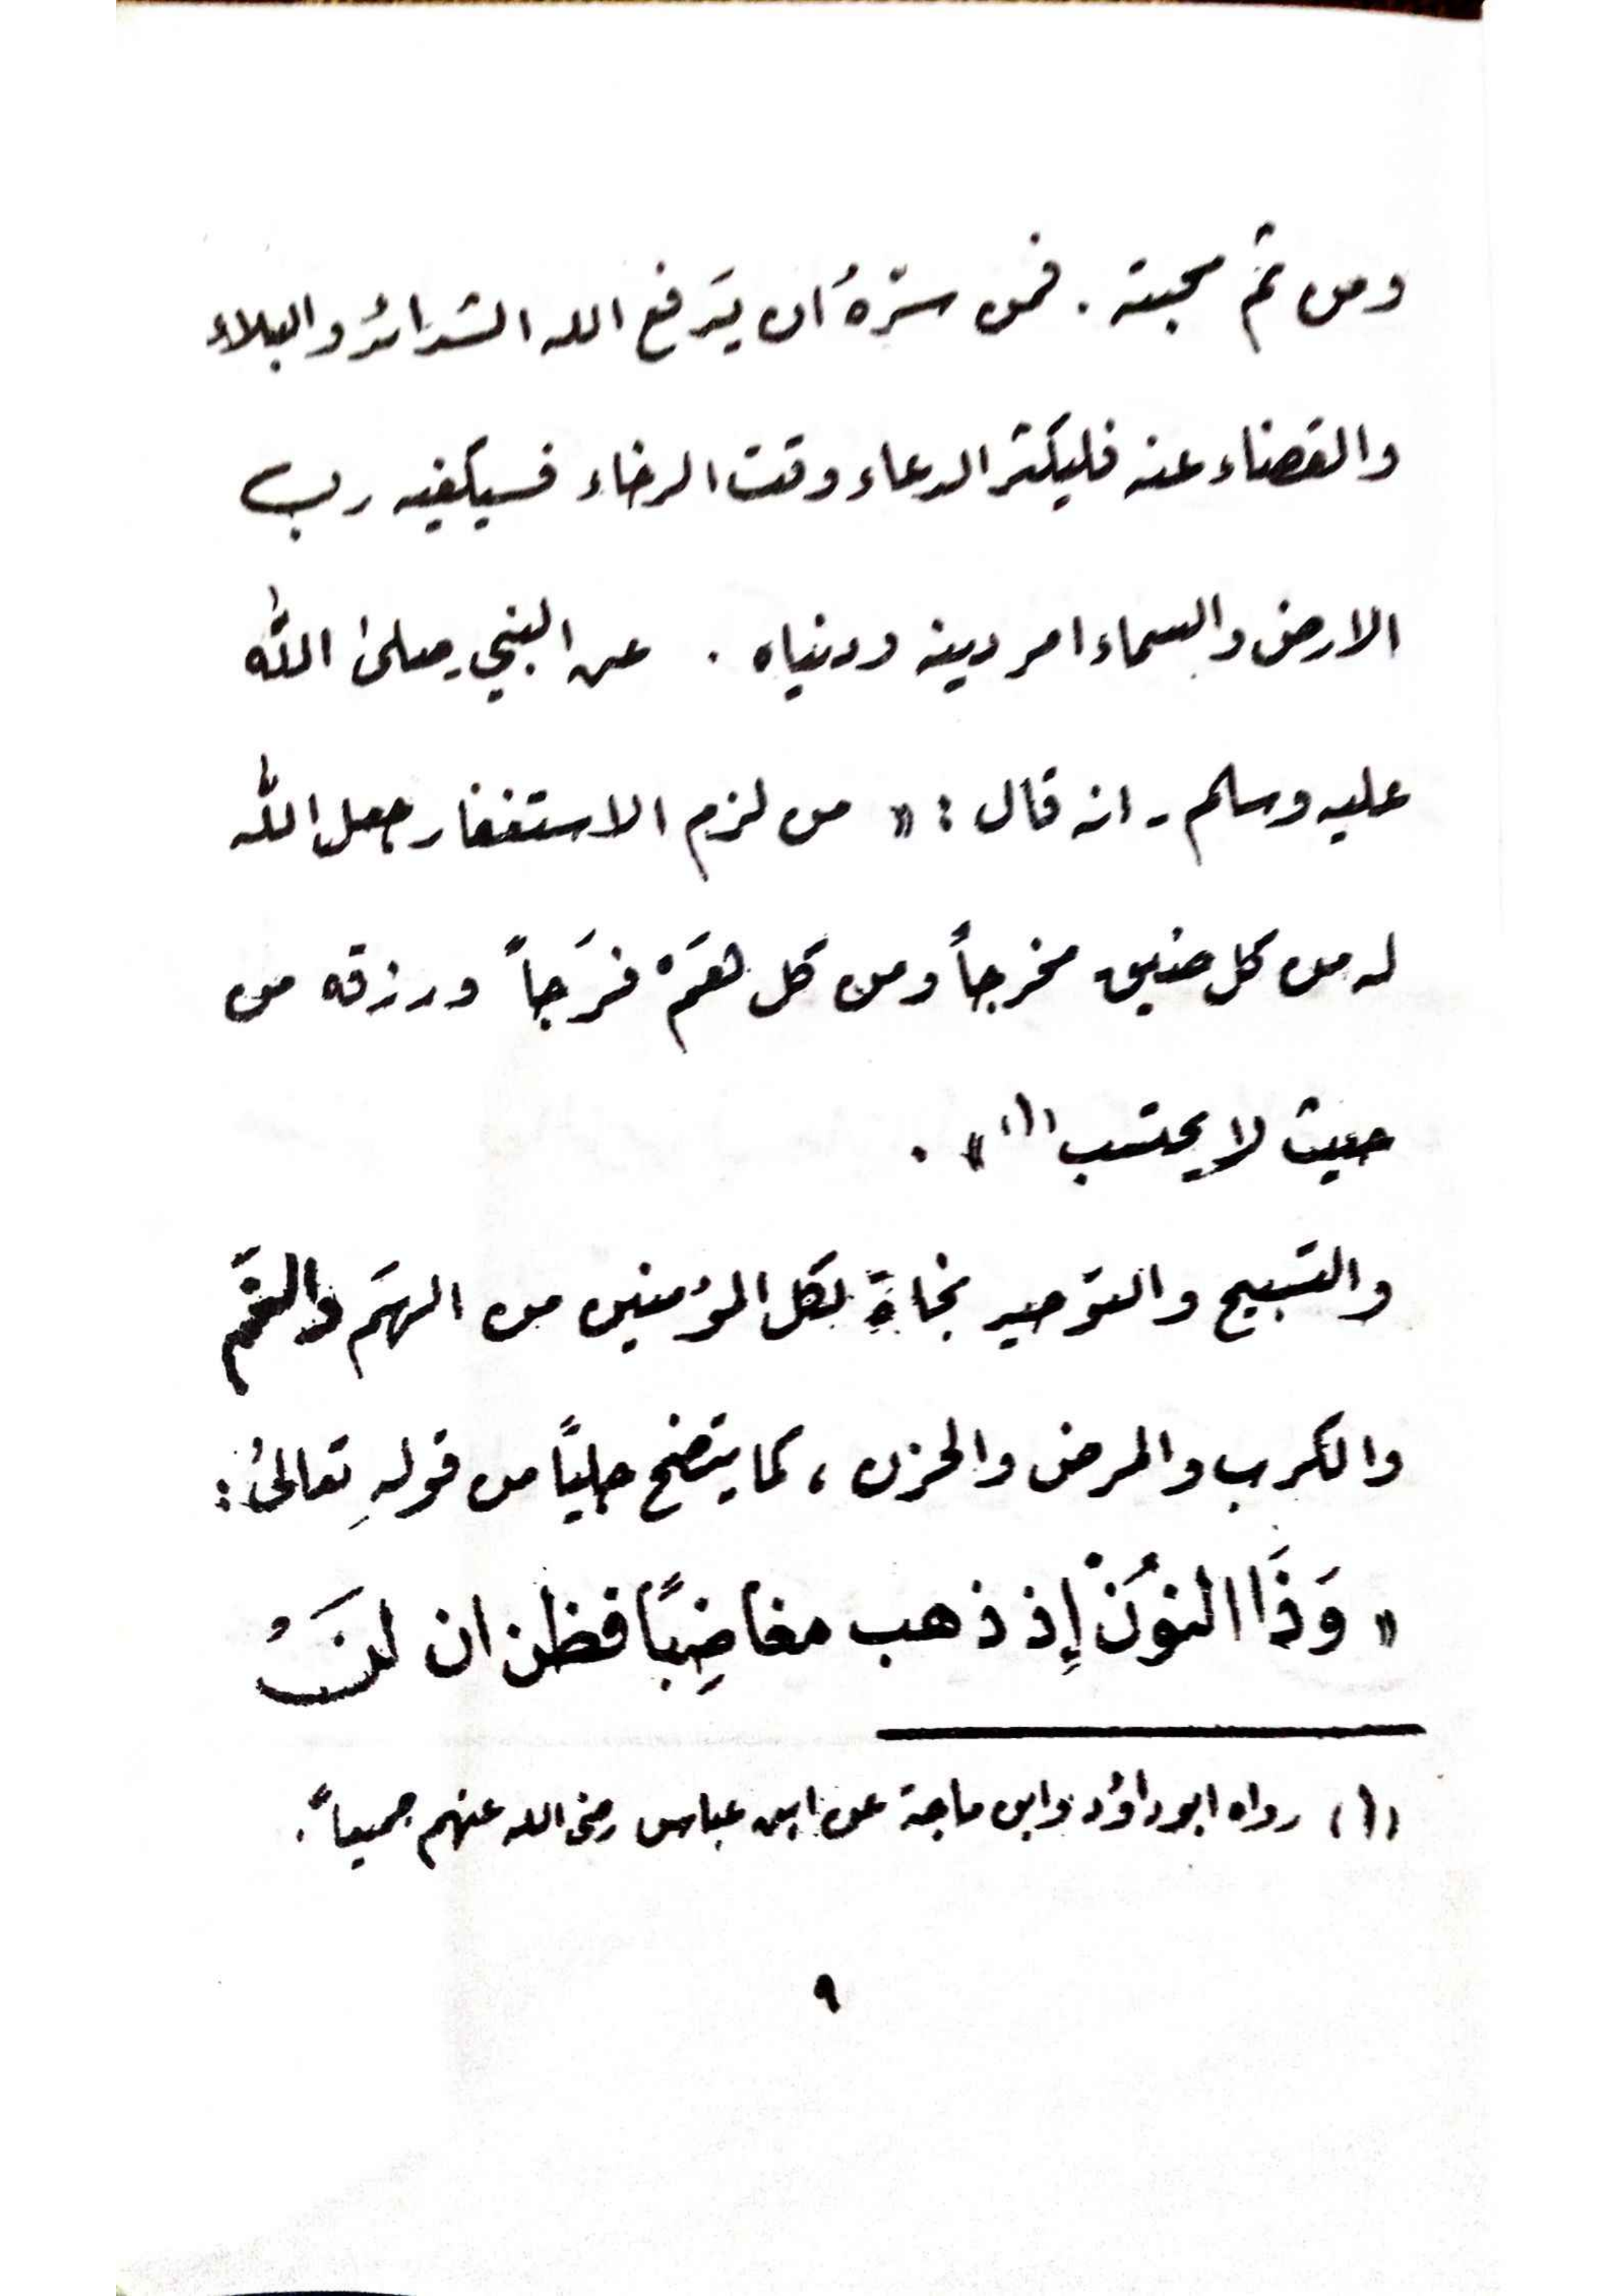 ومن ثم محبته . فمن سرّهُ ان يَرفع الله الشدائد والبلاء
والقضاء عنه فليكثر الدعاء وقت الرخاء فسيكفيه رب
الارض والسماء امر دينه ودنياه . عن النبي ـ صلى الله
عليه وسلم ـ انه قال : « من لزم الاستغفار جعل الله
له من كل ضيق مخرجاً ومن كل همَمْ فرَجاً ورزقه من
حيث لا يحتسب (١) » .
والتسبيح والتوحيد نجاةِ لكل المؤمنين من الهَم والغَم
والكرب والمرض والحزن ، كما يتضح جليًا من قولهِ تعالىٰ :
« وَذَا النوُنْ إِذ ذهب مغاضِبًا فظن ان لنَْ
(١) رواه ابو داوُد وابن ماجة عن ابن عباس رضي الله عنهم جميعاً .
٩